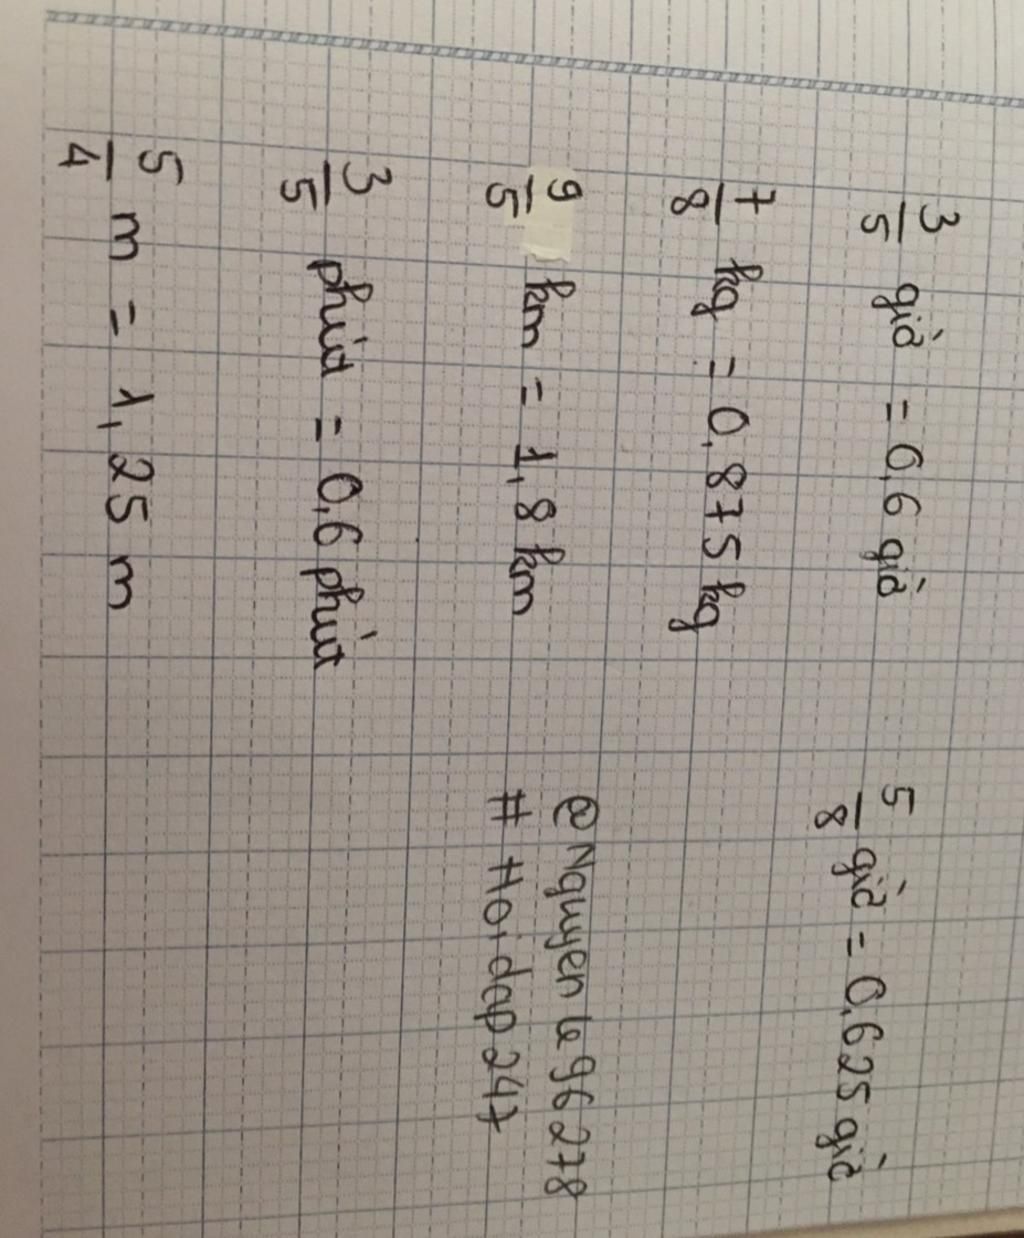 3/5 giờ = 0,6 giờ
5/8 giờ = 0,625 giờ
7/8 kg = 0,875 kg
9/5 km = 1,8 km
@Nguyenle96278
# Hoidap247
3/5 phút = 0,6 phút
5/4 m = 1,25 m